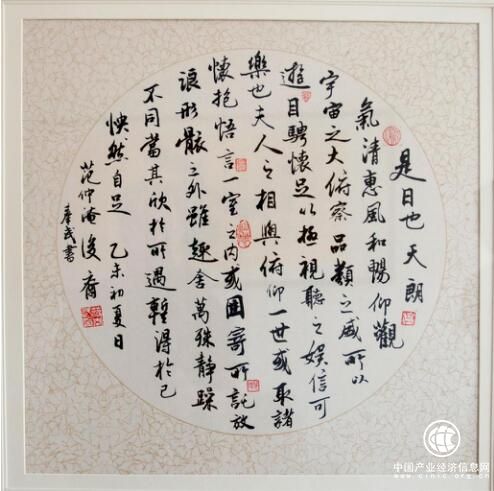 是日也天朗
氣清惠風和暢仰觀
宇宙之大俯察品類之盛所以
遊目騁懷足以極視聽之娛信可
樂也夫人之相與俯仰一世或取諸
懷抱悟言一室之內或因寄所託放
浪形骸之外雖趣舍萬殊靜躁
不同當其欣於所遇暫得於己
怏然自足 乙未初夏日
范仲淹後裔
武書
中国产业经济信息网
www.cinic.org.cn